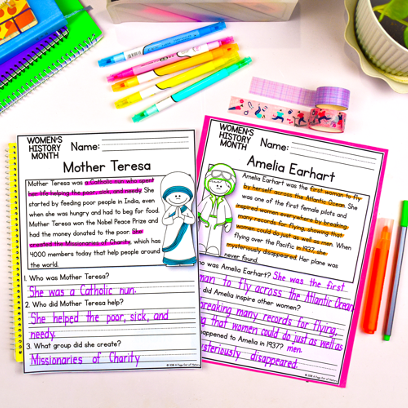 WOMEN'S
HISTORY
MONTH
Name:
Mother Teresa
Mother Teresa was a Catholic nun who spent
her life helping the poor, sick, and needy. She
started by feeding poor people in India, even
when she was hungry and had to beg for food.
Mother Teresa won the Nobel Peace Prize and
had the money donated to the poor. She
created the Missionaries of Charity, which has
4000 members today that help people around
the world.
1. Who was Mother Teresa?
She was a Catholic nun.
2. Who did Mother Teresa help?
She helped the poor, sick, and
needy.
3. What group did she create?
Missionaries of Charity
WOMEN'S
HISTORY
MONTH
Name:
Amelia Earhart
Amelia Earhart was the first woman to fly
by herself across the Atlantic Ocean. She
was one of the first female pilots and
inspired women everywhere by breaking
many records for flying, showing that
women could do just as well as men. When
flying over the Pacific in 1937, she
mysteriously disappeared. Her plane was
never found.
was Amelia Earhart? She was the first
man to fly across the Atlantic Ocean
did Amelia inspire other women?
breaking many records for flying,
g that women could do just as well as
happened to Amelia in 1937? men.
ysteriously disappeared.